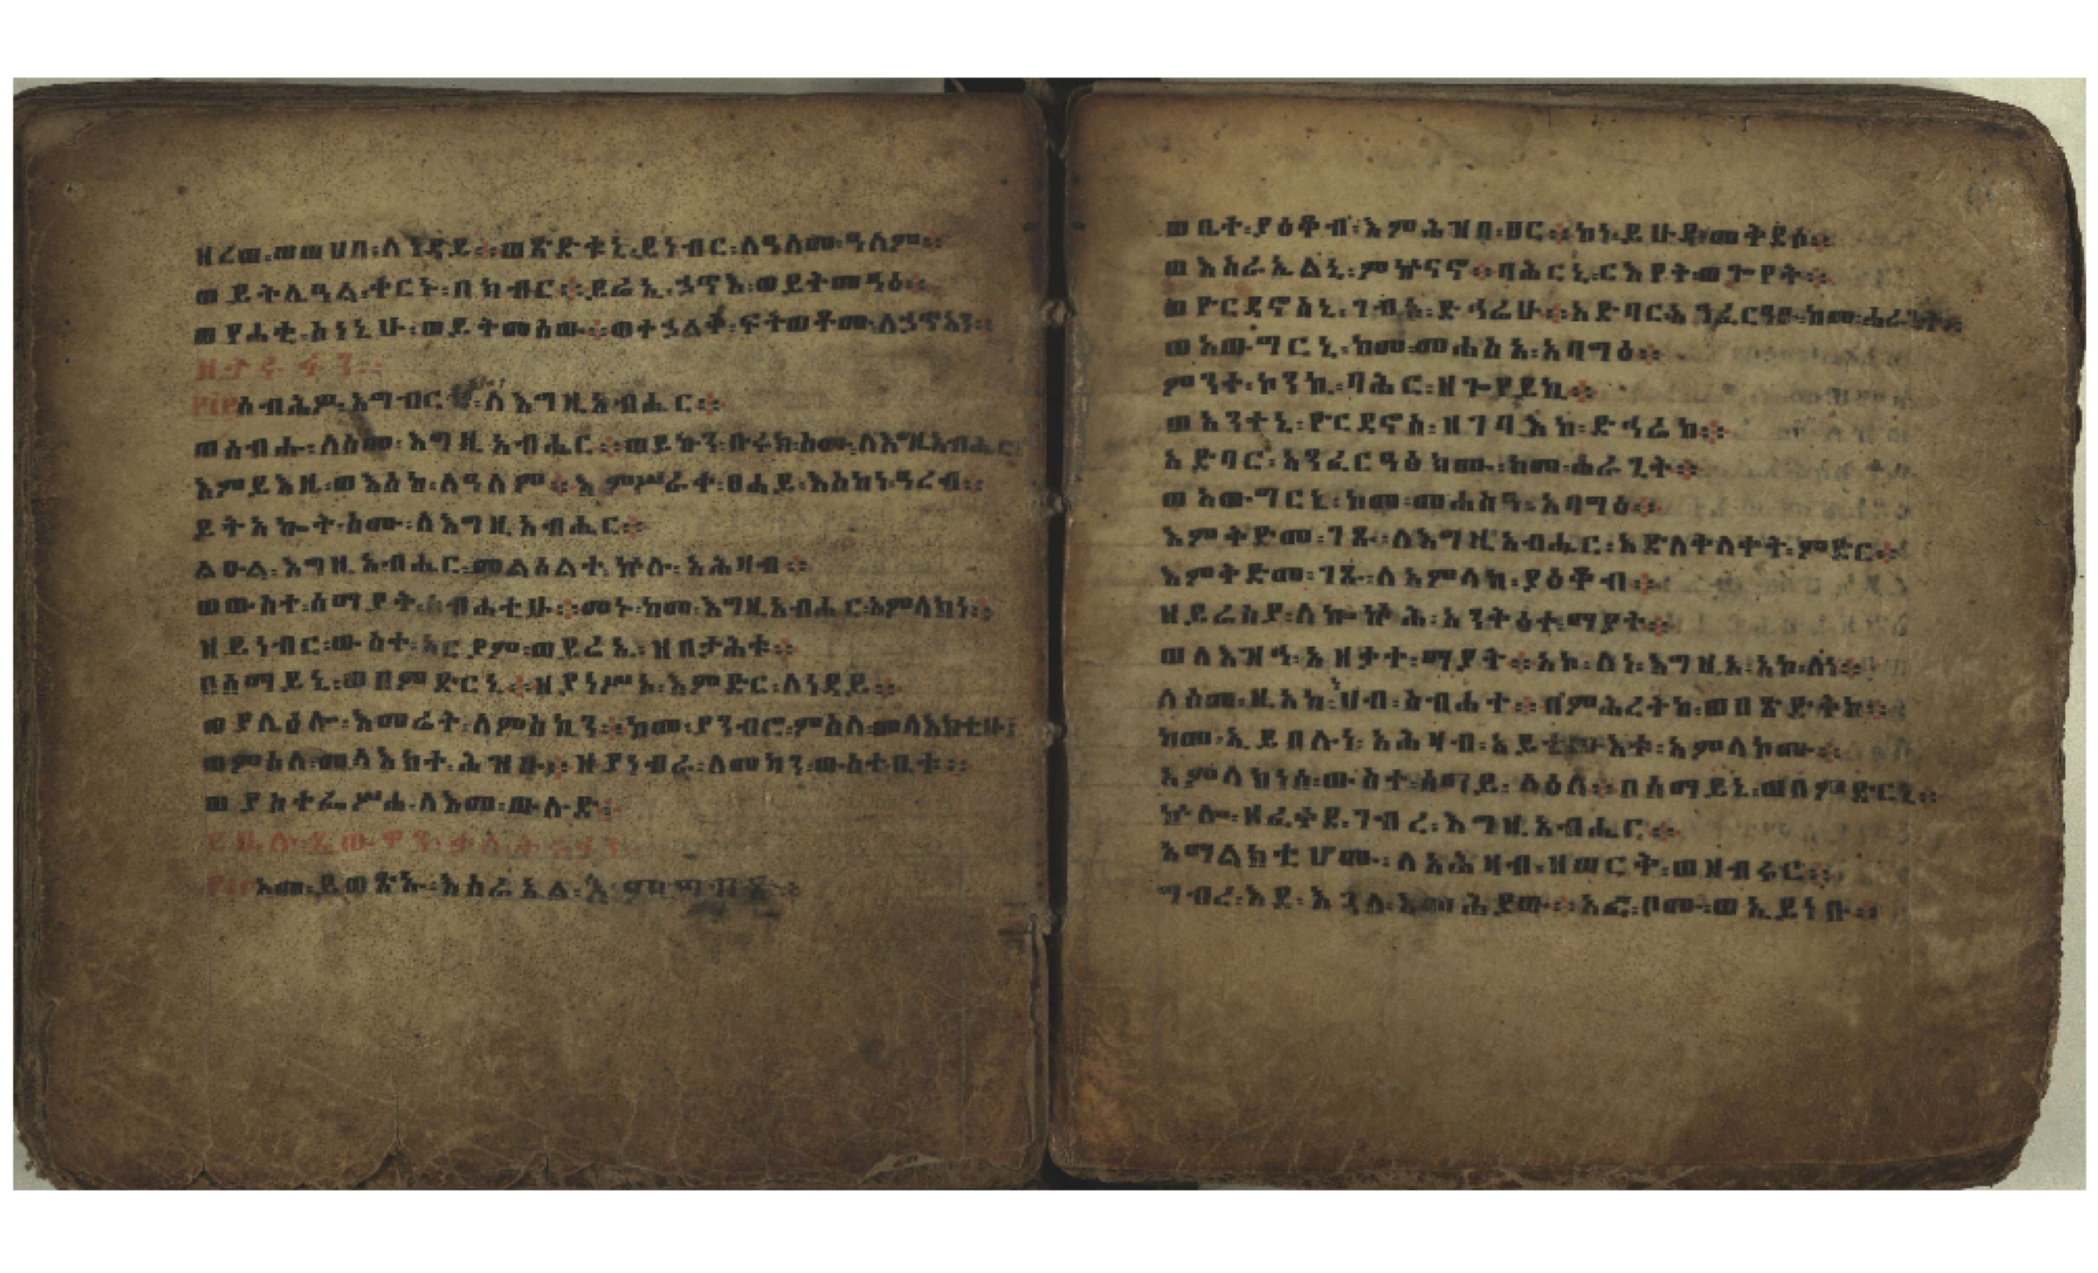 ዘረወ፡ወወሀበ፡ለነዳይ፡፡ወጽድቁኒ፡ይነብር፡ለዓለመ፡ዓለም፡፡
ወይትሌዓል፡ቀርኑ፡በክብር፡፡ይሬኢ፡ኃጥእ፡ወይትመዓዕ፡፡
ወያሐቂ፡ስነኒሁ፡ወይትመሰው፡፡ወተኃልቅ፡ፍትወቶሙ፡ለኃጥኣን፡፡
ዘተሩፋን፡፡
፻፲፪ሰብሕዎ፡አግብርት፡ለእግዚአብሔር፡፡
ወሰብሑ፡ለስመ፡እግዚአብሔር፡፡ወይኩን፡ቡሩክ፡ስሙ፡ለእግዚአብሔር፡
እምይእዜ፡ወእስከ፡ለዓለም፡፡እምሥራቀ፡ፀሐይ፡እስከነ፡ዓረብ፡፡
ይትአኰት፡ስሙ፡ለእግዚአብሔር፡፡
ልዑል፡እግዚአብሔር፡መልዕልተ፡ኵሉ፡አሕዛብ፡፡
ወውስተ፡ሰማያት፡ስብሐቲሁ፡፡መኑ፡ከመ፡እግዚአብሔር፡አምላክነ፡፡
ዝይነብር፡ውስተ፡አርያም፡ወይሬኢ፡ዝበታሕቱ፡፡
በሰማይኒ፡ወበምድርኒ፡፡ዝያነሥኦ፡እምድር፡ለነዳይ፡፡
ወያሌዕሎ፡እመሬት፡ለምስኪን፡፡ከመ፡ያንብሮ፡ምስለ፡መላእክቲሁ፡
ወምስለ፡መላእክተ፡ሕዝቡ፡፡ዝያነብራ፡ለመካን፡ውስተ፡ቤቱ፡፡
ወያስተፌሥሐ፡ለእመ፡ውሉድ፡
፻፲፫አመ፡ይወጽኡ፡እስራኤል፡እምግብጽ፡፡
ወቤተ፡ያዕቆብ፡እምሕዝበ፡ፀር፡፡ከነ፡ይሁዳ፡መቅደሱ፡፡
ወእስራኤልኒ፡ምኵናኖ፡፡ባሕርኒ፡ርእየት፡ወጐየት፡፡
ወዮርዳኖስኒ፡ገብአ፡ድኅሬሁ፡፡አድባር፡አንፈርዓፁ፡ከመ፡ሐራጊት፡፡
ወአውግርኒ፡ከመ፡መሐስአ፡አባግዕ፡፡
ምንተ፡ኮንኪ፡ባሕር፡ዘጐየይኪ፡፡
ወአንተኒ፡ዮርዳኖስ፡ዘገባእከ፡ድኅሬከ፡፡
አድባር፡አንፈርዓፅክሙ፡ከመ፡ሐራጊት፡፡
ወአውግርኒ፡ከመ፡መሐስዓ፡አባግዕ፡፡
እምቅድመ፡ገጹ፡ለእግዚአብሔር፡አድለቅለቀት፡ምድር፡፡
እምቅድመ፡ገጹ፡ለአምላክ፡ያዕቆብ፡፡
ዘይሬስያ፡ለኰኵሕ፡አንቅዕተ፡ማያት፡፡
ወለእዝኅ፡አዘቃተ፡ማያት፡፡አኮ፡ለነ፡እግዚኦ፡አኮ፡ለነ፡፡
ለስመ፡ዚአከ፡ሀብ፡ስብሐተ፡፡በምሕረትከ፡ወበጽድቅከ፡፡
ከመ፡ኢይበሉነ፡አሕዛብ፡አይቴ፡ውእቱ፡አምላኮሙ፡፡
አምላክነሰ፡ውስተ፡ሰማይ፡ላዕለ፡፡በሰማይኒ፡ወበምድርኒ፡
ኵሎ፡ዘፈቀደ፡ገብረ፡እግዚአብሔር፡፡
አማልክቲሆሙ፡ለአሕዛብ፡ዝወርቅ፡ወዘብሩር፡፡
ግብረ፡እደ፡እጓለ፡እመሕያው፡፡አፈ፡ቦሙ፡ወኢይነቡ፡፡